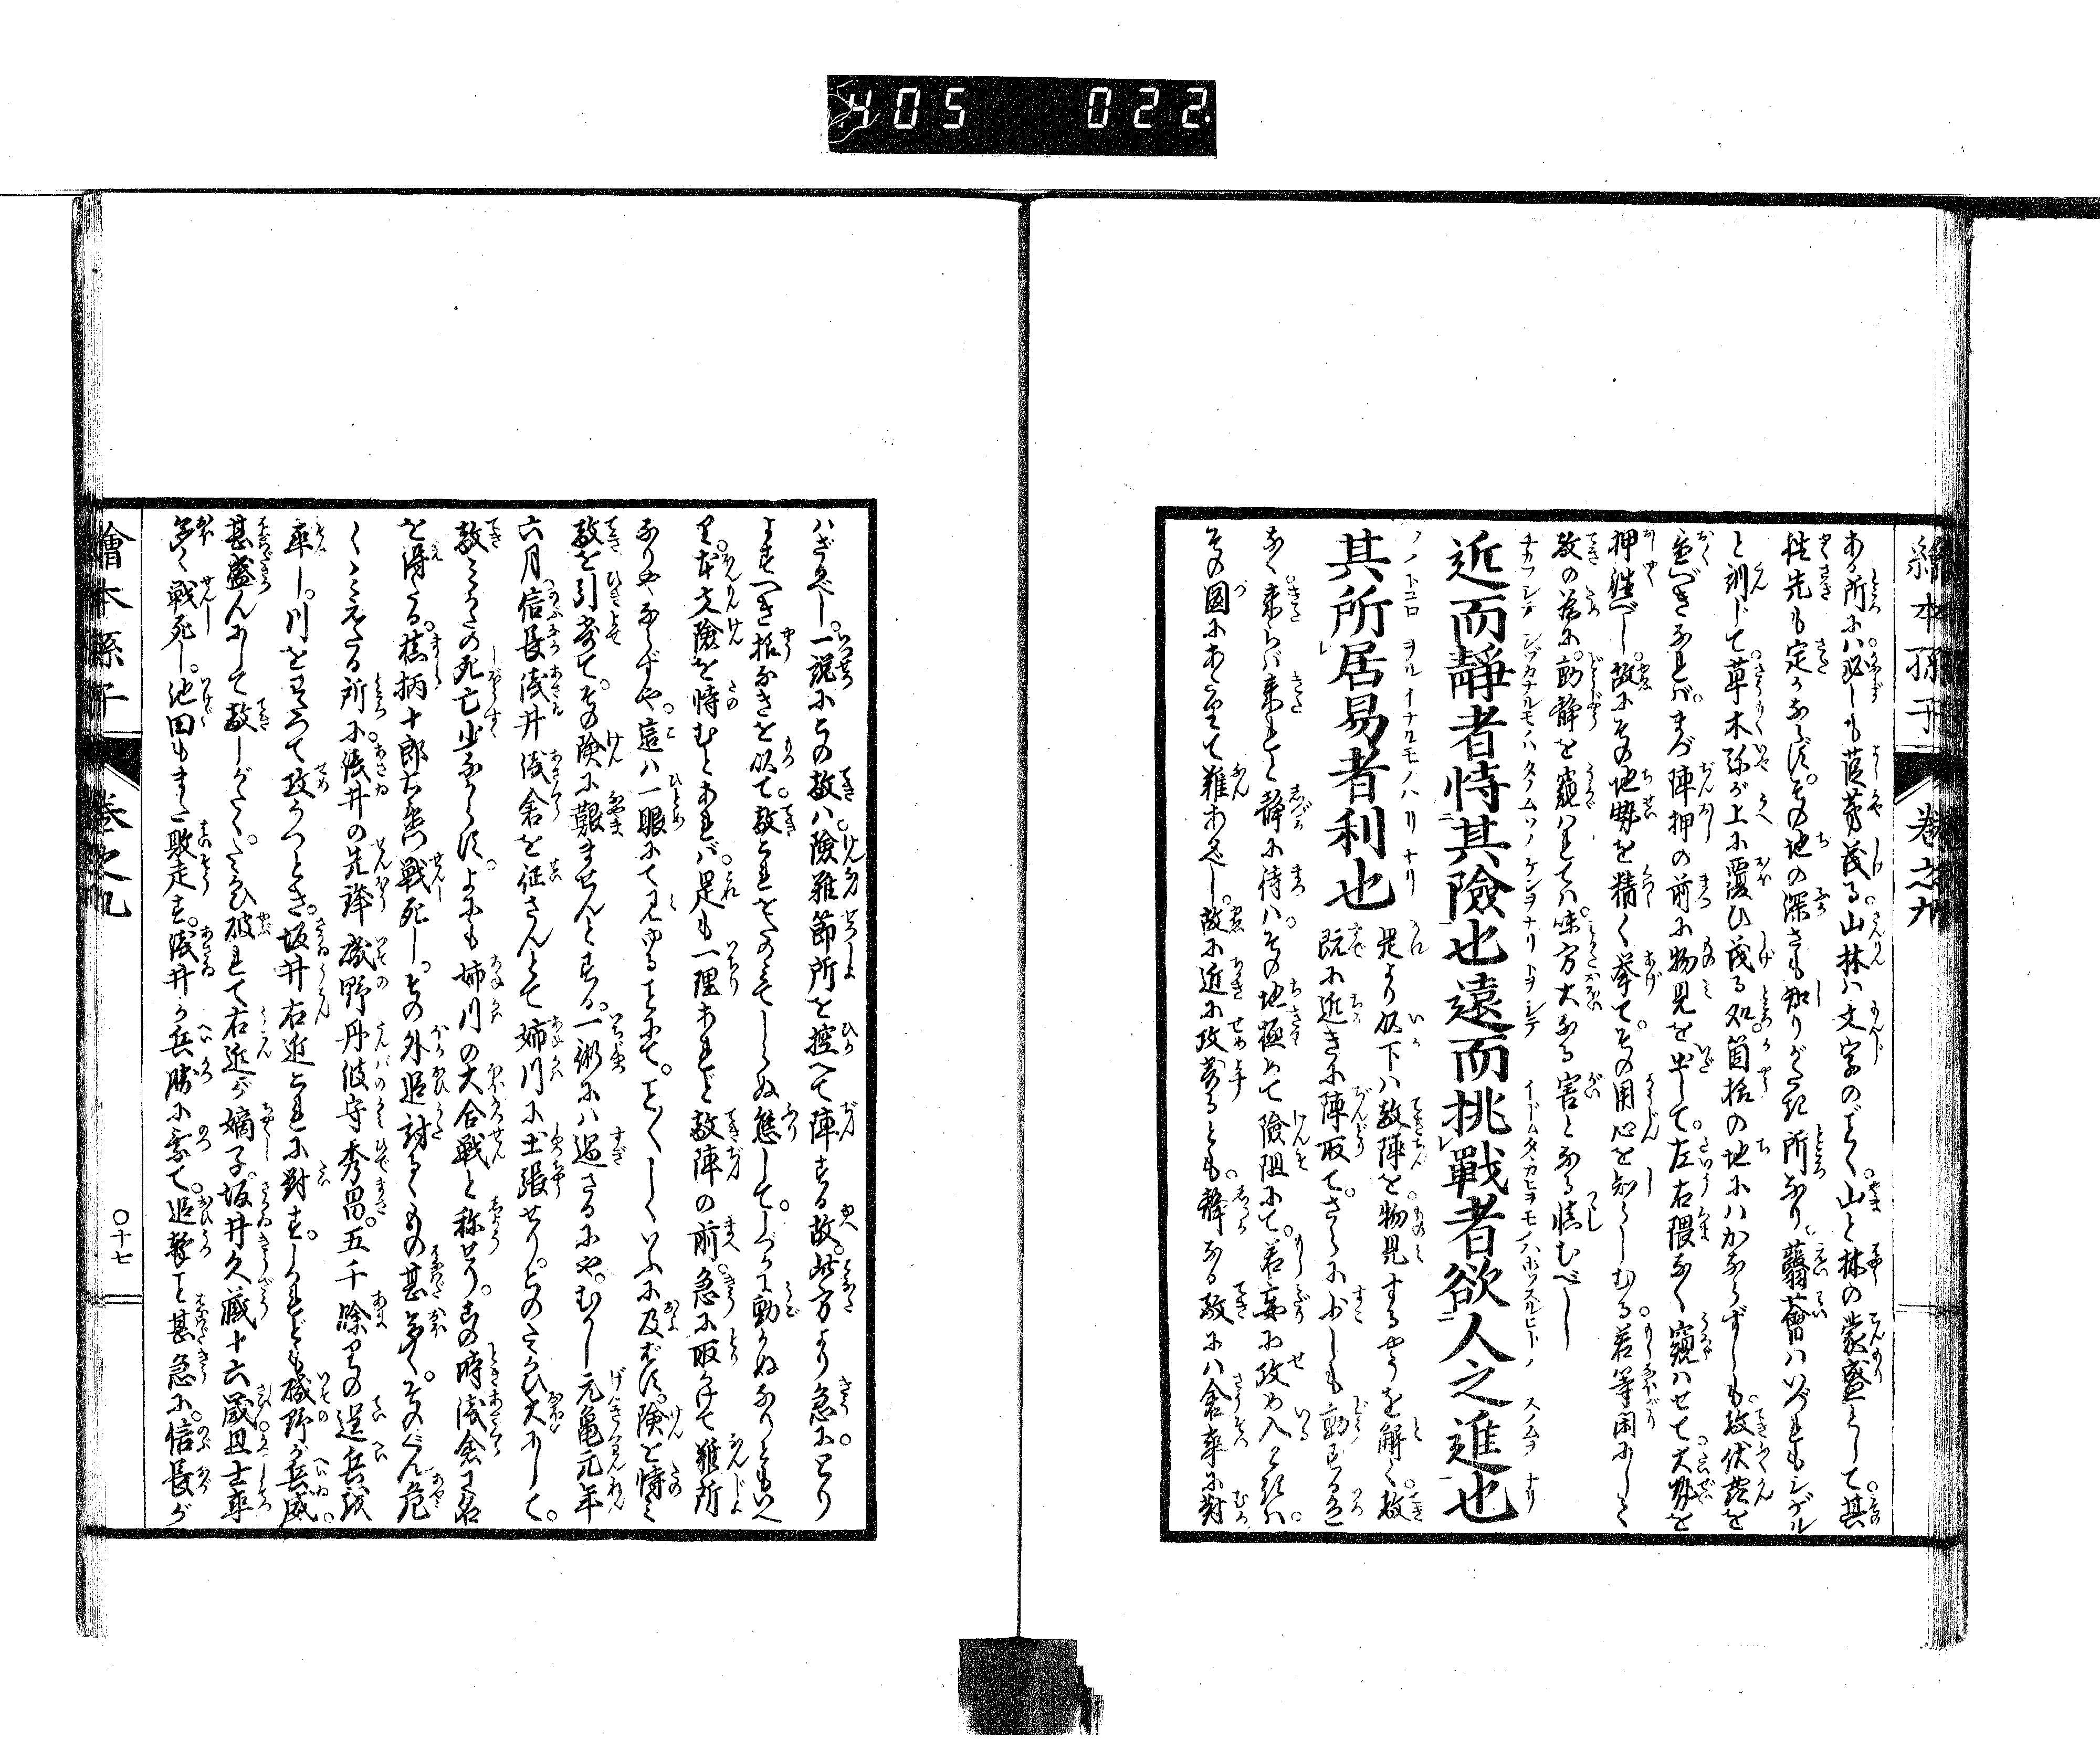 405 022
繪本孫子 巻之九
ある所にハ必しも葭葦茂る。山林ハ文字のごとく。山と林の叢盛にして。其
往先も定かならず。その地の深さも知りがたき所なり。蘙薈ハいづれもシゲル
と訓じて草木弥が上に覆ひ茂る処。箇柊の地にハかならずしも。敵伏姦を
置べきなれバ。まづ陣押の前に物見を出して。左右隈なく窺ハせて大勢を
押徃べし。故にその地勢を精く挙て。その用心を知らしむる。若等閑にして
敵の為に。動静を窺ハれてハ。味方大なる害となる慎むべし
近而靜者恃其險也遠而挑戰者欲人之進也
其所居易者利也
是より以下ハ敵陣を。物見するやうを解く。敵
既に近きに陣取て。さらに少しも動する色
なく。来らバ来れと静に待ハ。その地極めて險阻にて。若妄に攻め入ときハ。
その圖にあたりて難あるべし。故に近に攻寄るとも。静なる敵にハ倉卒に對
ハざるべし。一説にその敵ハ。險難節所を控へて陣する故。此方より急に。とり
よすべき
なきを以て。敵これをたのみてしらぬ態して。しづかに動かぬなりともいへ
り。本文險を恃むとあれバ。是も一理あれど敵陣の前。急に取かけて難所
なりやならずや。這ハ一眼にて見ゆることにて。ことくしくいふに及ばず。険を恃み
敵を引寄て。その険に艱ませんとする。一術にハ過ざるにや。むかし元亀元年
六月信長浅井浅倉を征さんとて姉川に出張せり。そのたゝかひ大にして。
敵みかたの死亡少なからず。よにも姉川の大合戦と称せり。この時浅倉に名
を得たる。真柄十郎左衛門戦死し。その外追討るゝもの甚多く。そのぐん危
くゝみえたる所に浅井の先鋒磯野丹波守秀昌。五千餘りの逞兵を
率し。川をわたつて攻うつとき。坂井右近これに對す。しかれども磯野が兵威。
甚盛んにして敵しがたく。たゝかひ破れて右近が嫡子。坂井久蔵十六歳且士卒
多く戦死し。池田もまた敗走す。浅井が兵勝に乗て。追撃こと甚急に。信長が
繪本孫子 巻之九
〇十七